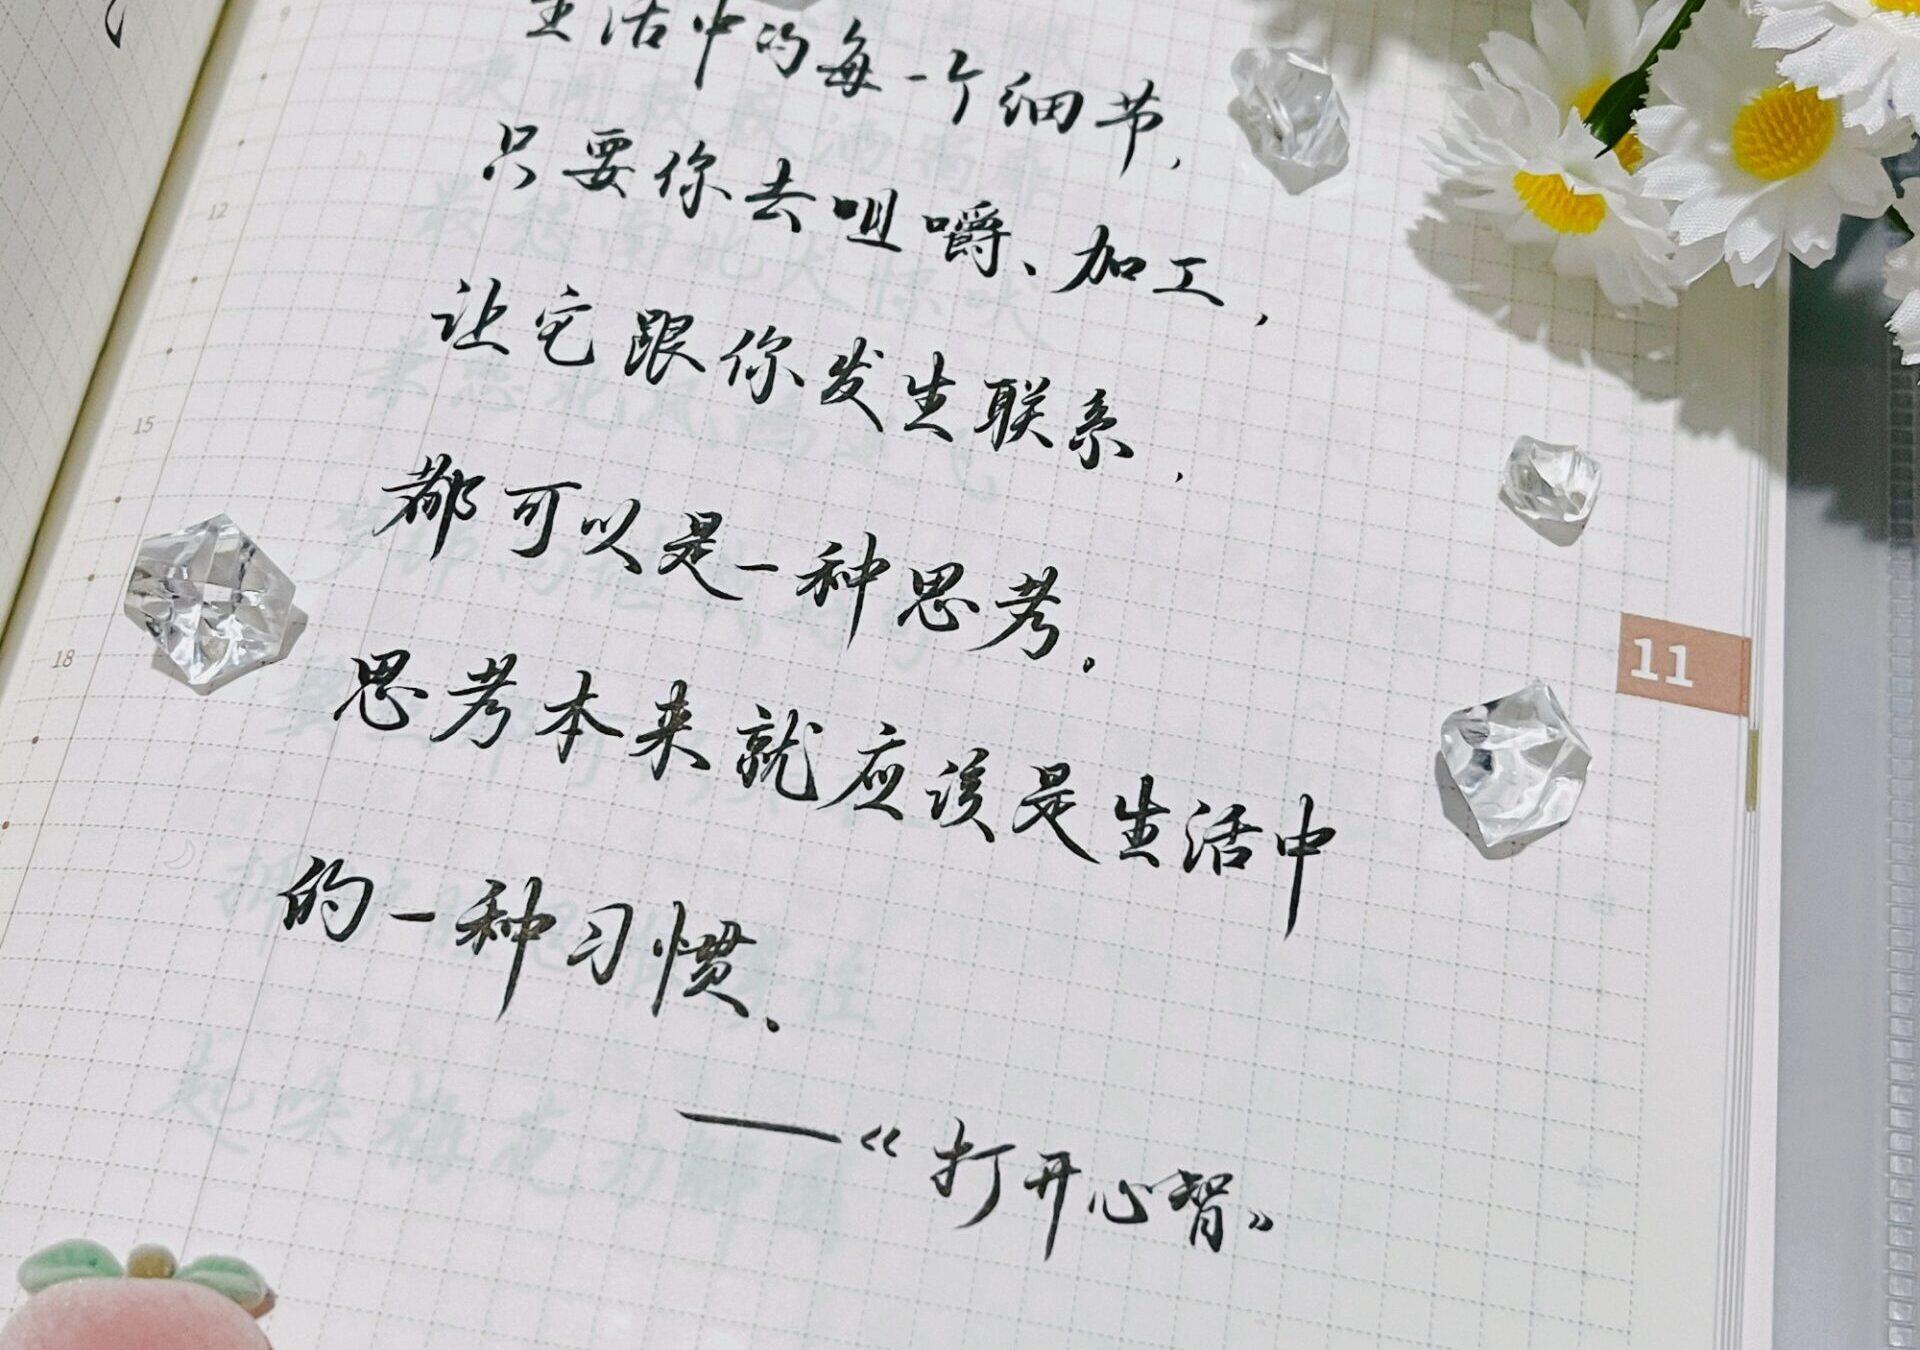 生活中的每一个细节,
只要你去咀嚼、加工,
让它跟你发生联系,
都可以是一种思考.
思考本来就应该是生活中
的一种习惯.
——《打开心智》
9
12
15
18
11